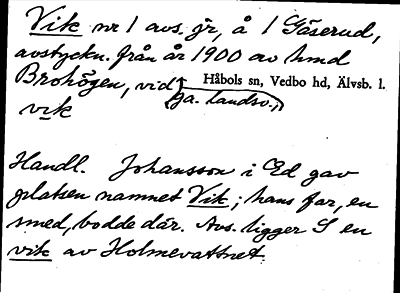 Vik nr 1 avs. jr, å 1 Gäserud,
avstyckn. från år 1900 av hmd
Brohögen, vid Håbols sn, Vedbo hd, Älvsb. l.
vik ga. landsv.,
Handl. Johansson i Ed gav
platsen namnet Vik; hans far, en
smed, bodde där. Avs. ligger S en
vik av Holmevattnet.